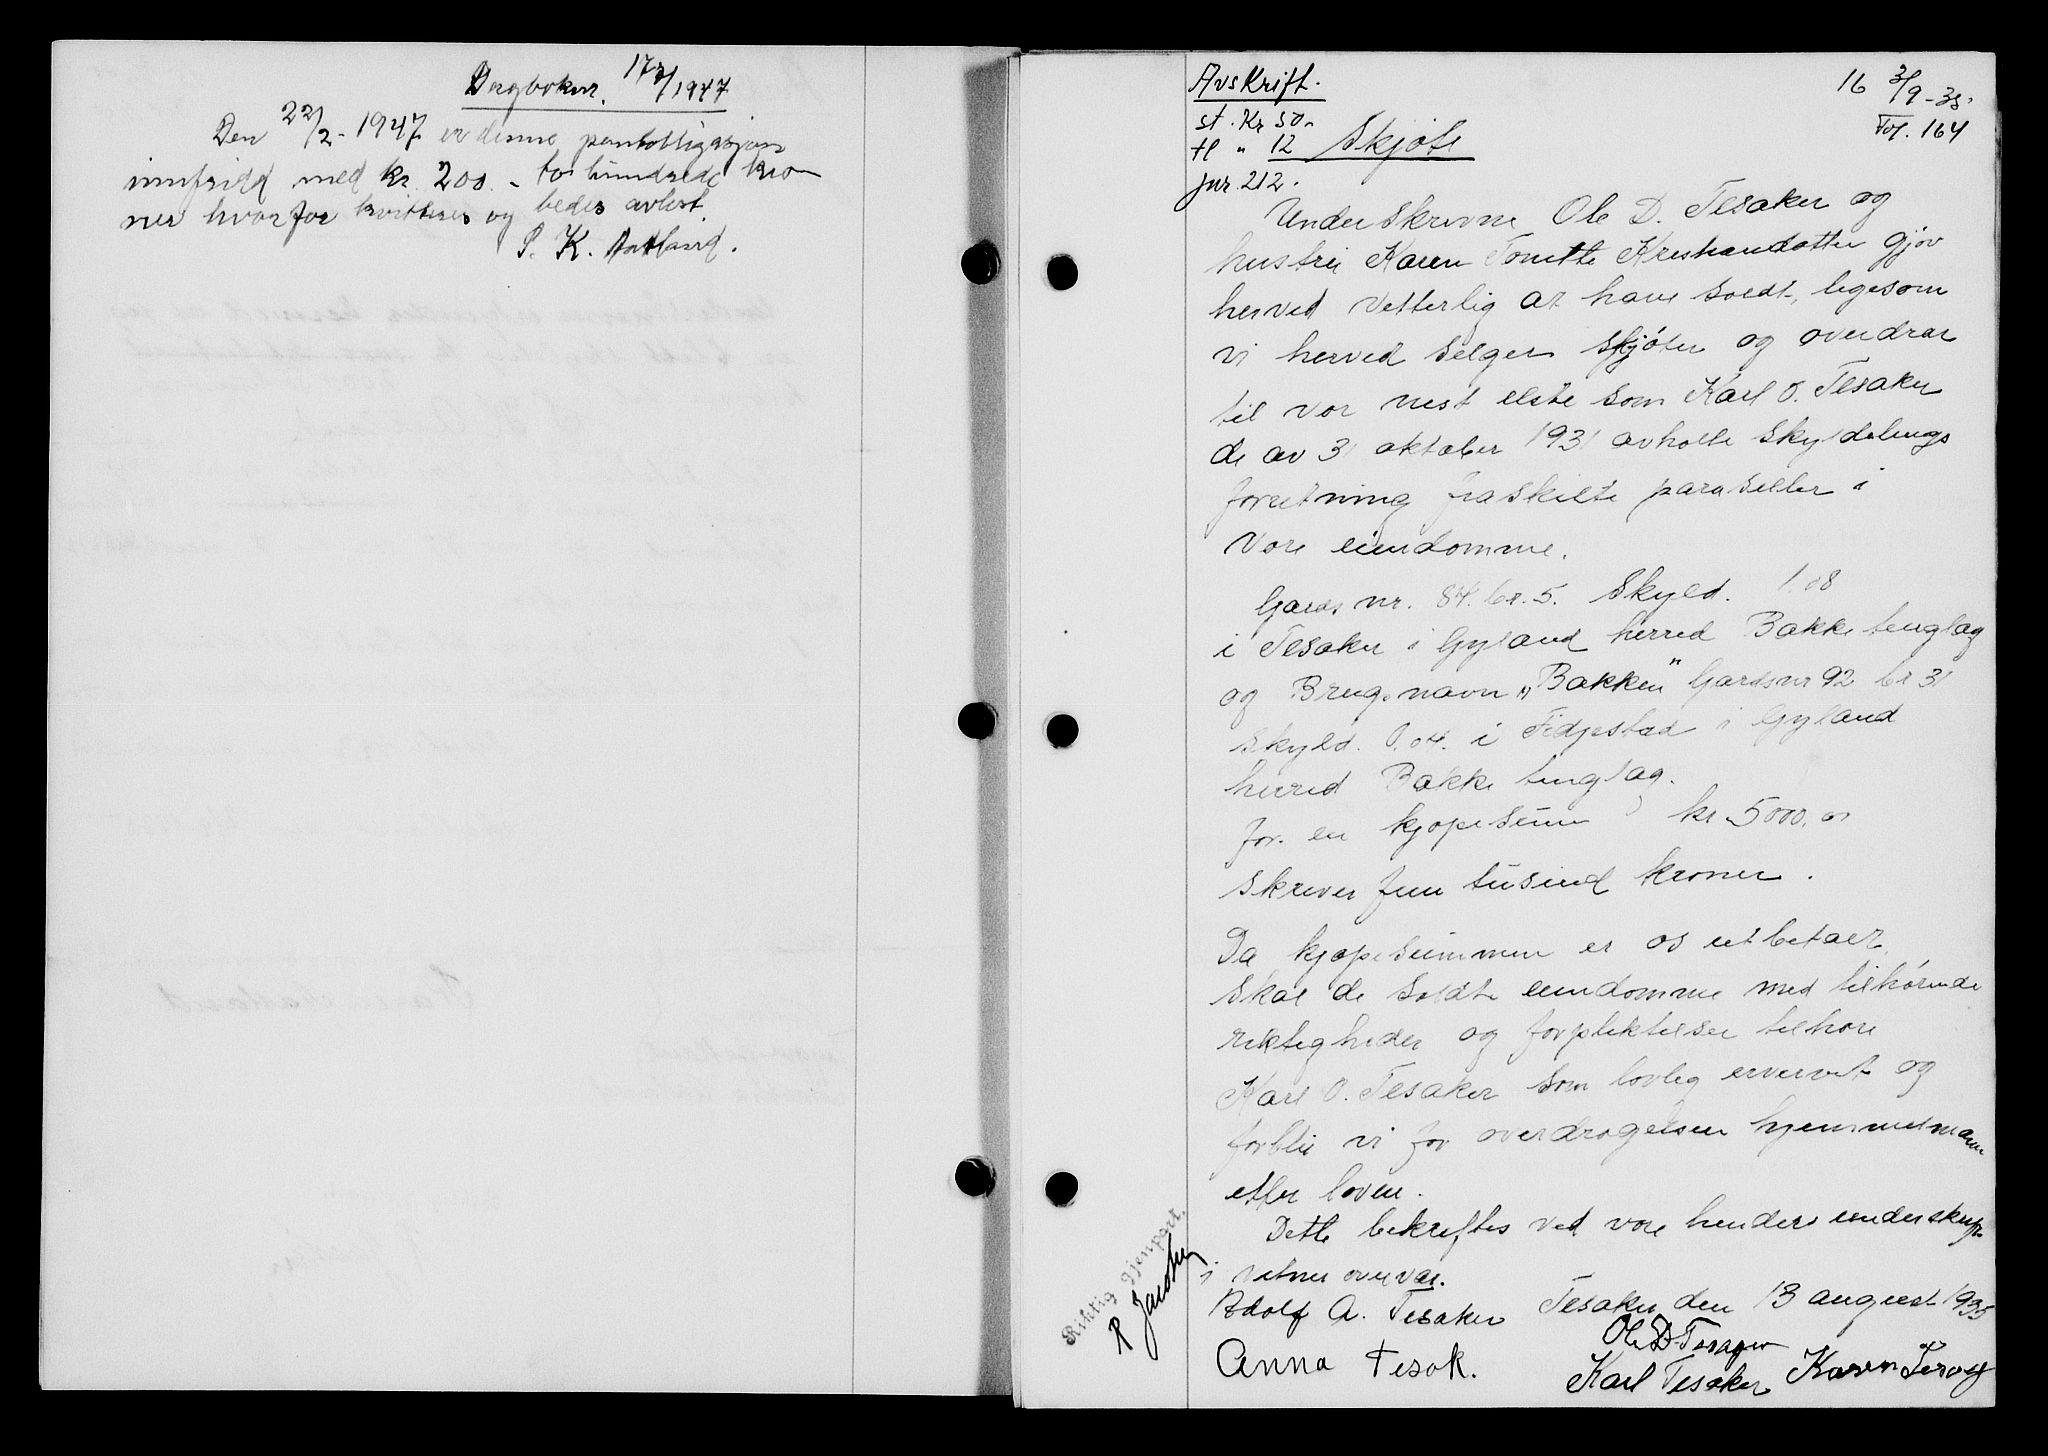 Dagboknr. 17 3/1947
Den 22/2 - 1947 er denne pantobligasjon
innfridd med kr. 200.- to hundrede kro-
ner hvorfor kvitteres og bedes avlest.
P. K. Aatland.
Avskrift.
st. Kr 50.-
tl " 12
jnr. 212.
16 3/9-35.
Fol. 164
Skjøte
Underskrevne Ole D. Tesaker og
hustru Karen Tonette Kristiansdatter gjør
herved vetterlig at have soldt, ligesom
vi herved selger skjøter og overdrar
til vor nest elste søn Karl O. Tesaker
de av 31 oktober 1931 avholte skyldelings
forretning fraskilte paraseller i
vore eiendomme.
Gards nr. 84. br. 5. Skyld. 1.08
i Tesaker i Gyland herred Bakke tinglag
og Brugsnavn "Bakken" Gardsnr 92 br 31
skyld. 0.04. i Fidjestad i Gyland
herred Bakke tinglag.
for. en kjøpesum kr 5000.00
skriver fem tusind kroner.
Da kjøpesummen er os utbetalt
skal de soldte eiendomme med tilhørende
rektigheder og forpliktelser tilhøre
Karl O. Tesaker som lovlig ervervet og
forblir vi for overdragelsen hjemmelsmann
etter loven.
Dette bekreftes ved vore henders underskrift
i vitner overvær.
Tesaker den 13 august 1935
Adolf A. Tesaker
Ole D Tesaker
Anna Tesak.
Karl Tesaker
Karen
Riktig gjenpart.
P Jacobsen